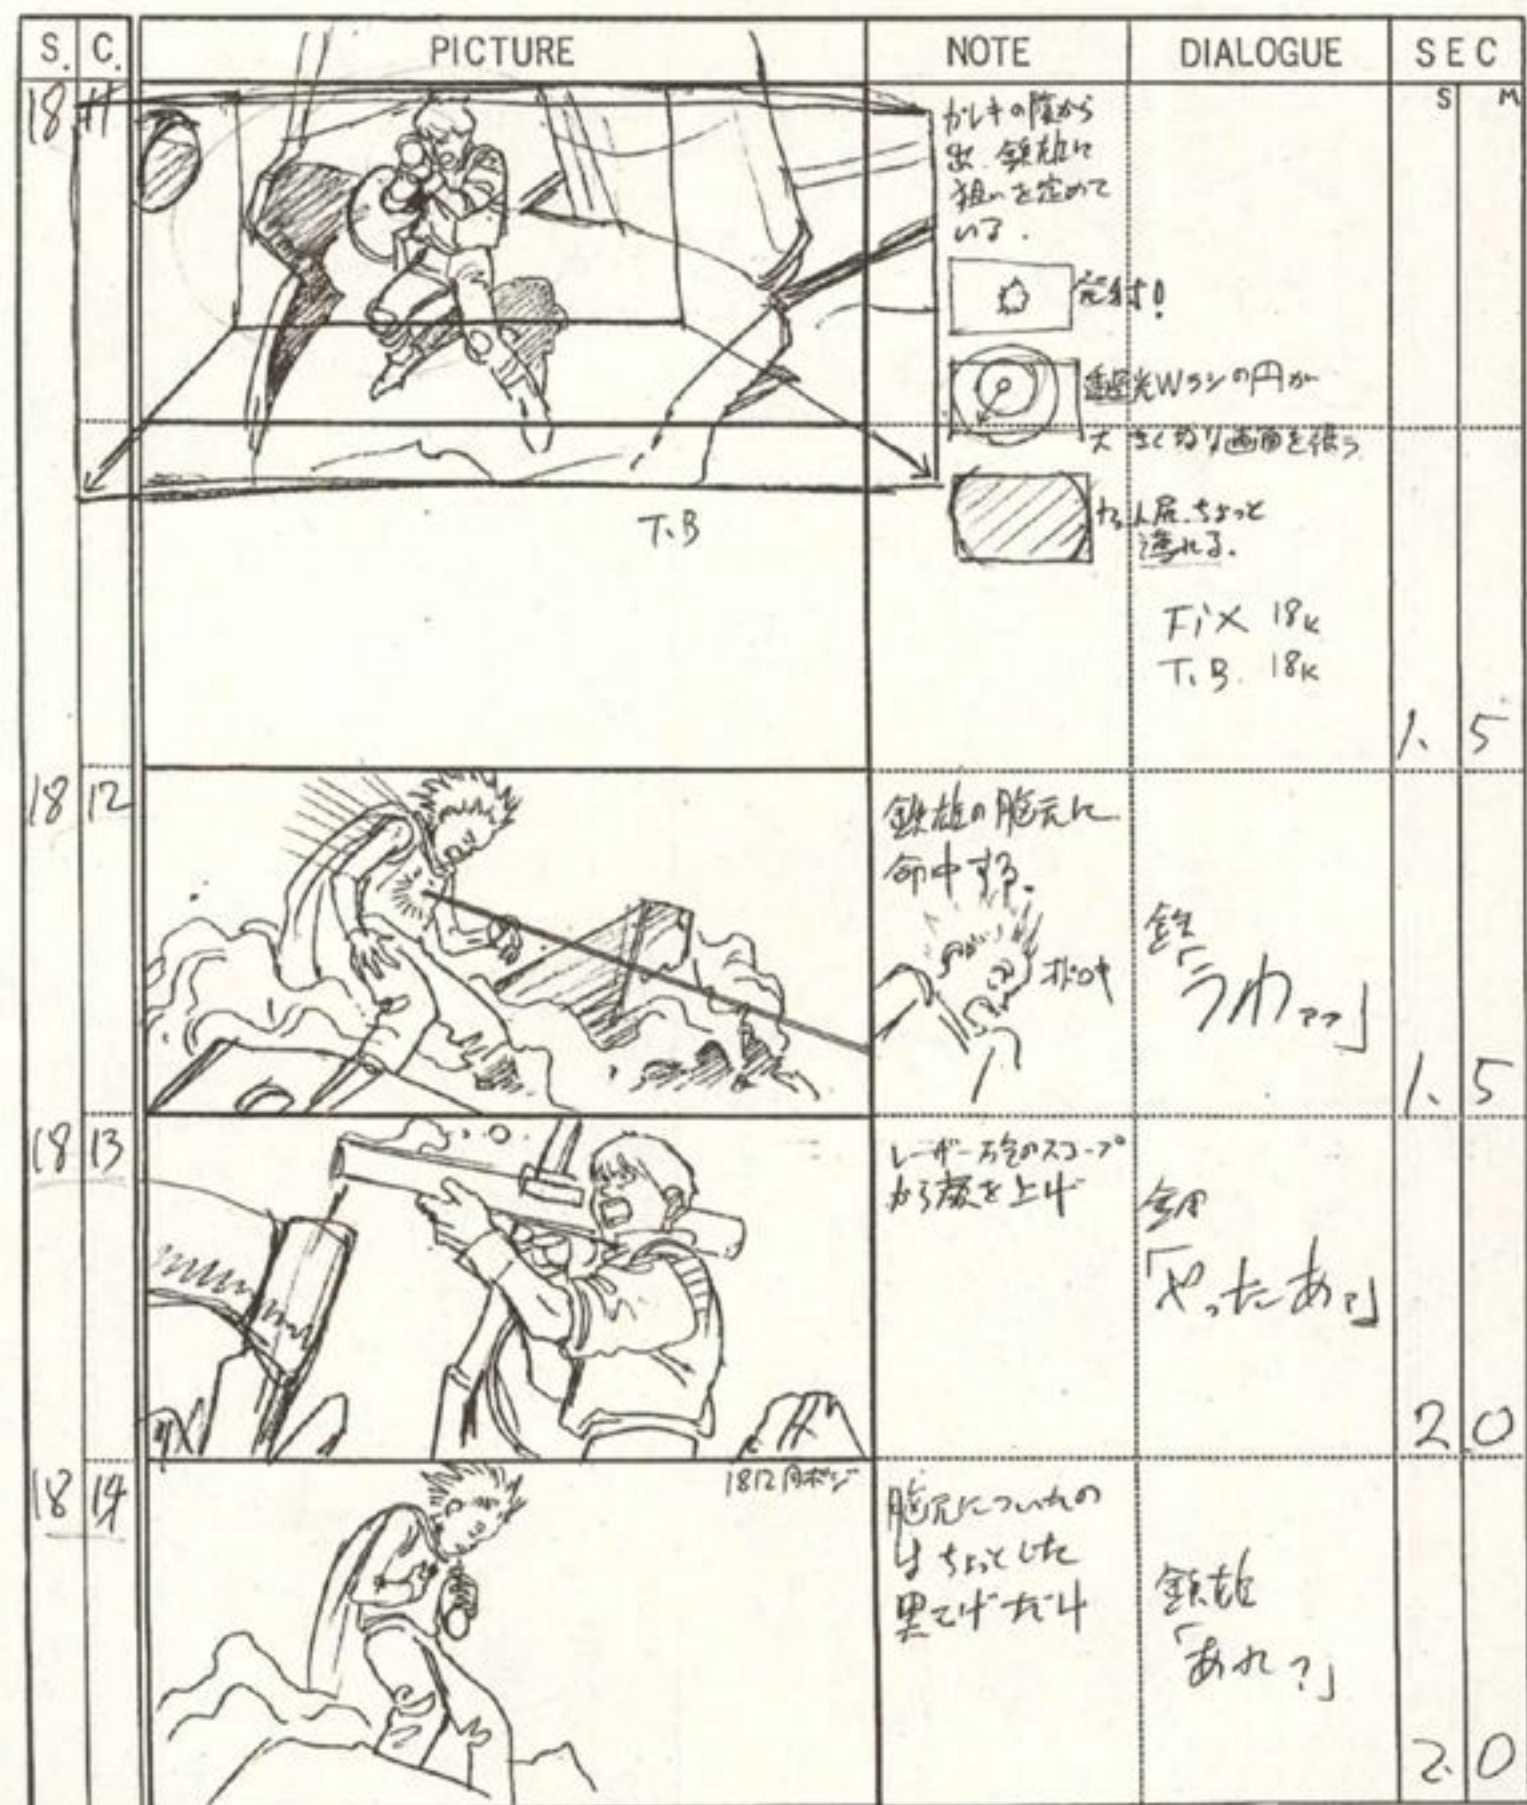 S. C. PICTURE NOTE DIALOGUE SEC
S M
18 11
ガレキの陰から
出、鉄雄に
狙いを定めて
いる.
発射!
透過光Wランの円が
大きくなり画面を覆う
ちょっと
薄れる.
T.B
Fix 18K
T.B. 18K
1. 5
18 12
鉄雄の胸元に
命中する.
オドロキ
鉄
「うわァァ」
1. 5
18 13
レーザー砲のスコープ
から顔を上げ
金田
「やったあァ」
2.0
18 14
1812同ポジ
胸元についたの
はちょっとした
黒こげだけ
鉄雄
「あれ?」
2.0